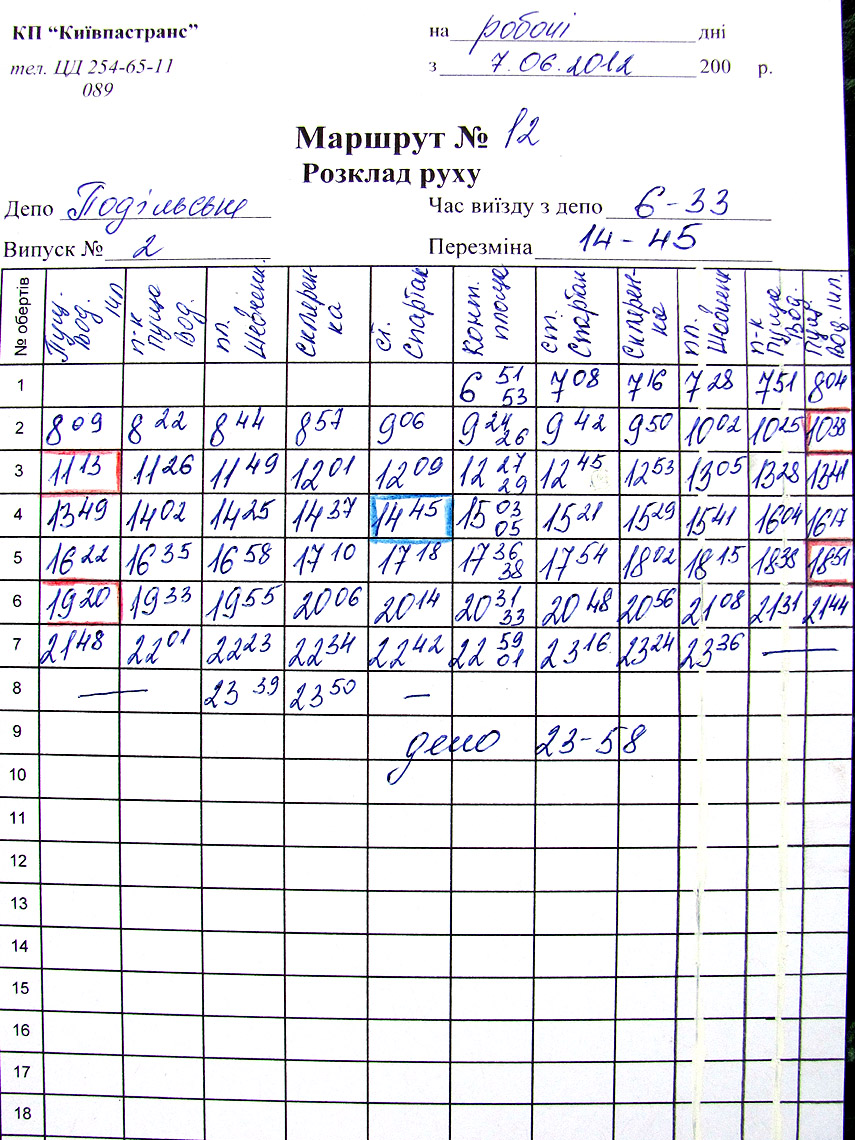 КП “Київпастранс” на робочі дні
тел. ЦД 254-65-11 з 7.06.2012 200 р.
089
Маршрут № 12
Розклад руху
Депо Подільське Час виїзду з депо 6-33
Випуск № 2 Перезміна 14-45
№ обертів Пущ. Вод. п-к Пуща Вод. пл. Скляренка ст. Спартак Конт. площа ст. Спартак Скляренка пл. п-к Пуща Вод. Пущ. Вод.
1 6 51 53 7 08 7 16 7 28 7 51 8 04
2 8 09 8 22 8 44 8 57 9 06 9 24 26 9 42 9 50 10 02 10 25 10 38
3 11 13 11 26 11 49 12 01 12 09 12 27 29 12 45 12 53 13 05 13 28 13 41
4 13 49 14 02 14 25 14 37 14 45 15 03 05 15 21 15 29 15 41 16 04 16 17
5 16 22 16 35 16 58 17 10 17 18 17 36 38 17 54 18 02 18 15 18 38 18 51
6 19 20 19 33 19 55 20 06 20 14 20 31 33 20 48 20 56 21 08 21 31 21 44
7 21 48 22 01 22 23 22 34 22 42 22 59 01 23 16 23 24 23 36 —
8 — 23 39 23 50 —
9 депо 23-58
10
11
12
13
14
15
16
17
18